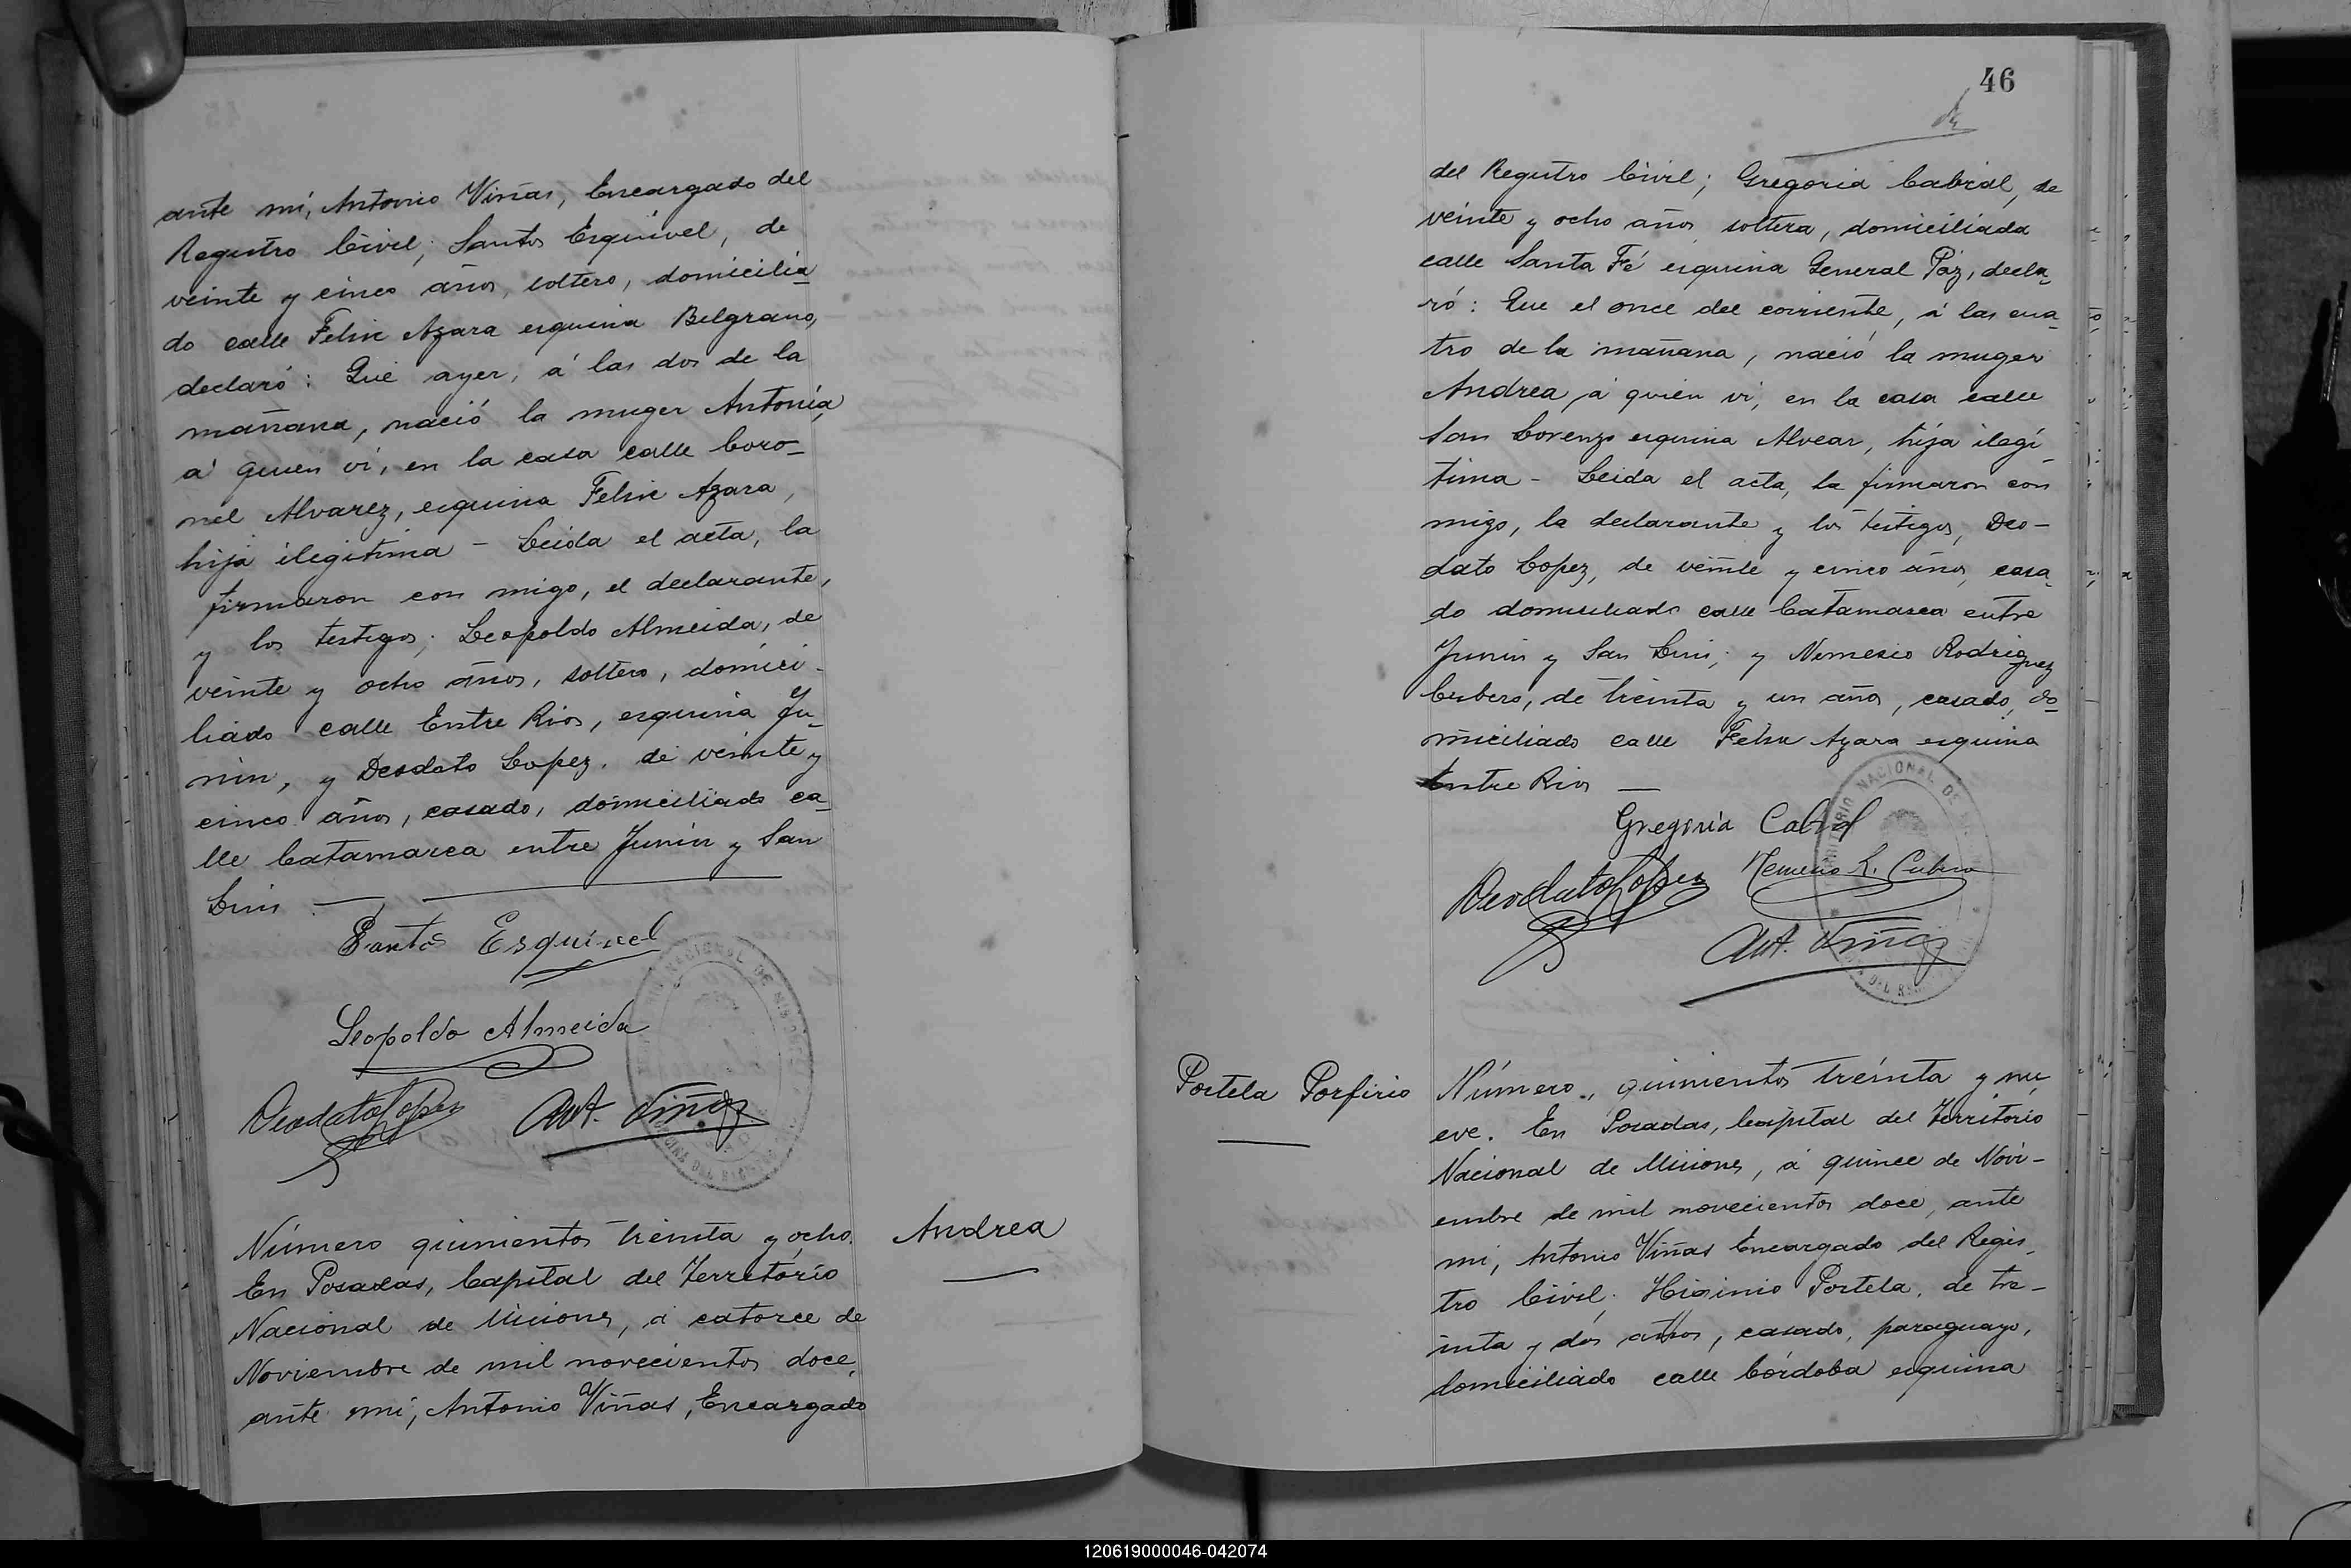 ante mí, Antonio Viñas, Encargado del
Registro Civil; Santos Esquivel, de
veinte y cinco años, soltero, domicilia
do calle Felix Azara esquina Belgrano,
declaró: Que ayer, á las dos de la
mañana, nació la muger Antonia,
á quien ví, en la casa calle Coro-
nel Alvarez, esquina Felix Azara,
hija ilegitima - Leida el acta, la
firmaron con migo, el declarante,
y los testigos; Leopoldo Almeida, de
veinte y ocho años, soltero, domici-
liado calle Entre Rios, esquina Ju-
nin, y Deodato Lopez, de veinte y
cinco años, casado, domiciliado ca-
lle Catamarca entre Junin y San
Luis —
Santos Esquivel
Leopoldo Almeida
Deodato Lopez Ant. Viñas
Número quinientos treinta y ocho.
Andrea
En Posadas, Capital del Territorio
Nacional de Misiones, á catorce de
Noviembre de mil novecientos doce,
ante mí, Antonio Viñas, Encargado
46
del Registro Civil; Gregoria Cabral, de
veinte y ocho años, soltera, domiciliada
calle Santa Fé esquina General Paz, decla-
ró: Que el once del corriente, á las cua-
tro de la mañana, nació la muger
Andrea, á quien ví, en la casa calle
San Lorenzo esquina Alvear, hija ilegi-
tima - Leida el acta, la firmaron con
migo, la declarante y los testigos, Deo-
dato Lopez, de veinte y cinco años, casa-
do domiciliado calle Catamarca entre
Junin y San Luis; y Nemesio Rodriguez
Cubero, de treinta y un años, casado, do-
miciliado calle Felix Azara esquina
Entre Rios —
Gregoria Cabral
Deodato Lopez Nemesio R. Cubero
Ant. Viñas
TERRITORIO NACIONAL DE
Portela Porfirio
Número, quinientos treinta y nu
eve. En Posadas, Capital del Territorio
Nacional de Misiones, á quince de Novi-
embre de mil novecientos doce, ante
mí, Antonio Viñas Encargado del Regis-
tro Civil; Higinio Portela, de tre-
inta y dos años, casado, paraguayo,
domiciliado calle Córdoba esquina
120619000046-042074